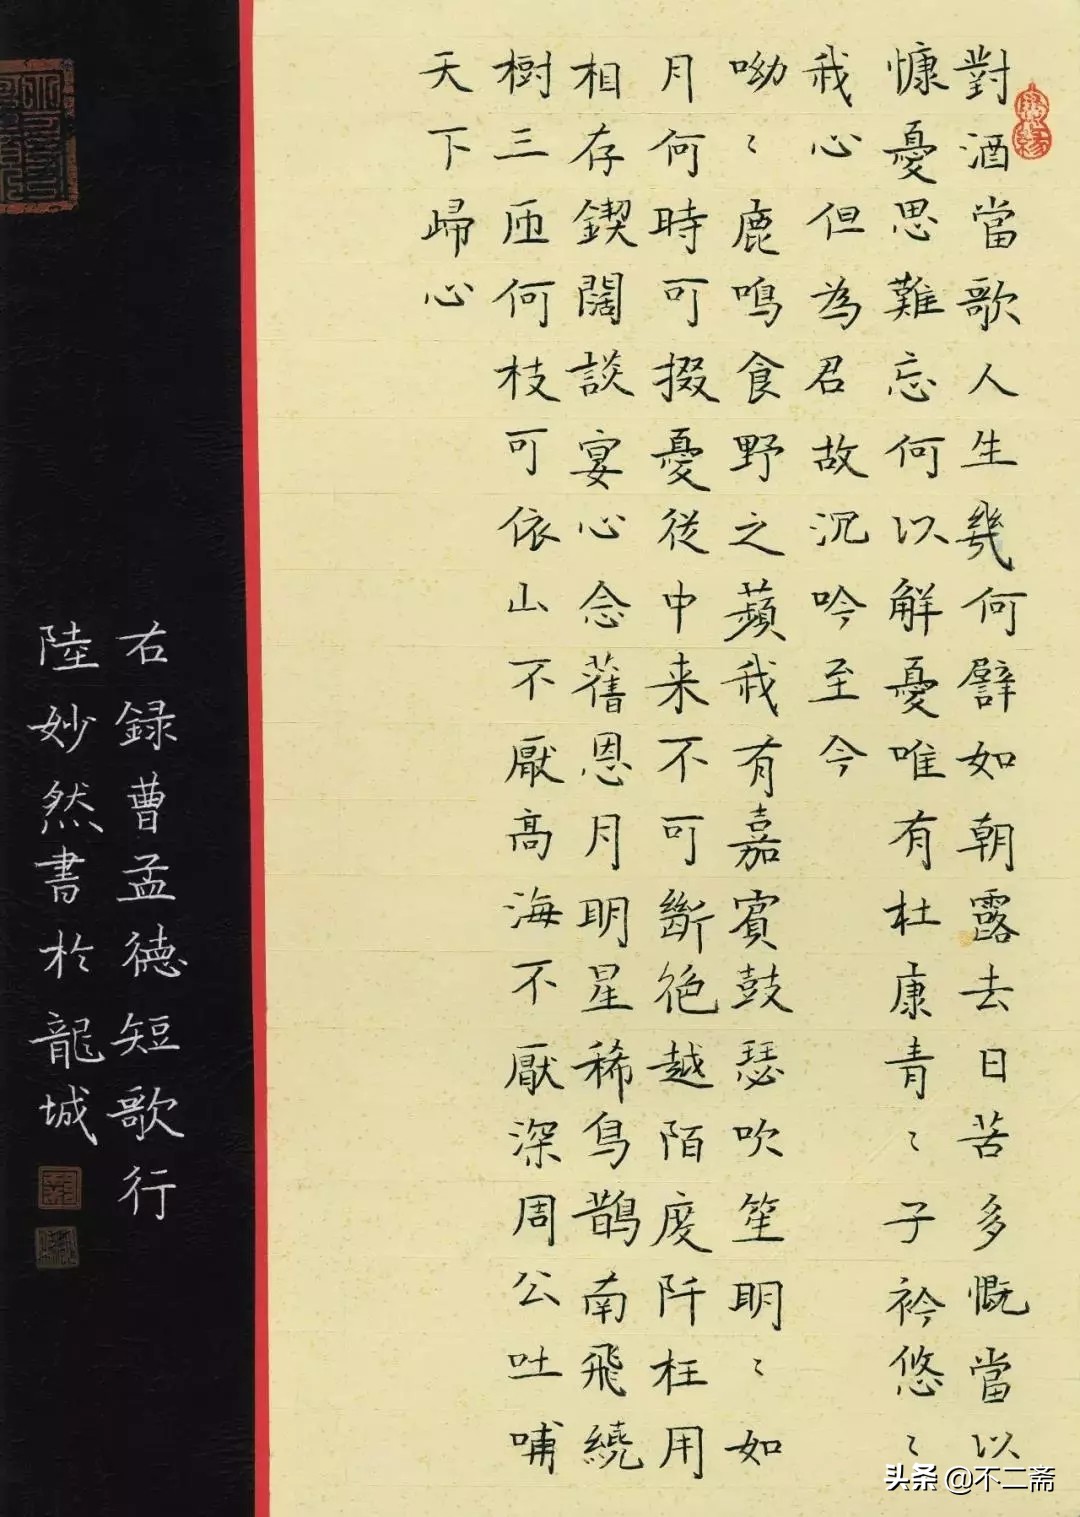 對酒當歌人生幾何譬如朝露去日苦多慨當以
慷憂思難忘何以解憂唯有杜康青〻子衿悠〻
我心但為君故沉吟至今
呦〻鹿鳴食野之蘋我有嘉賓鼓瑟吹笙明〻如
月何時可掇憂從中来不可斷絕越陌度阡枉用
相存鍥闊談宴心念舊恩月明星稀烏鵲南飛繞
樹三匝何枝可依山不厭高海不厭深周公吐哺
天下歸心
右録曹孟德短歌行
陸妙然書於龍城
头条 @不二斋